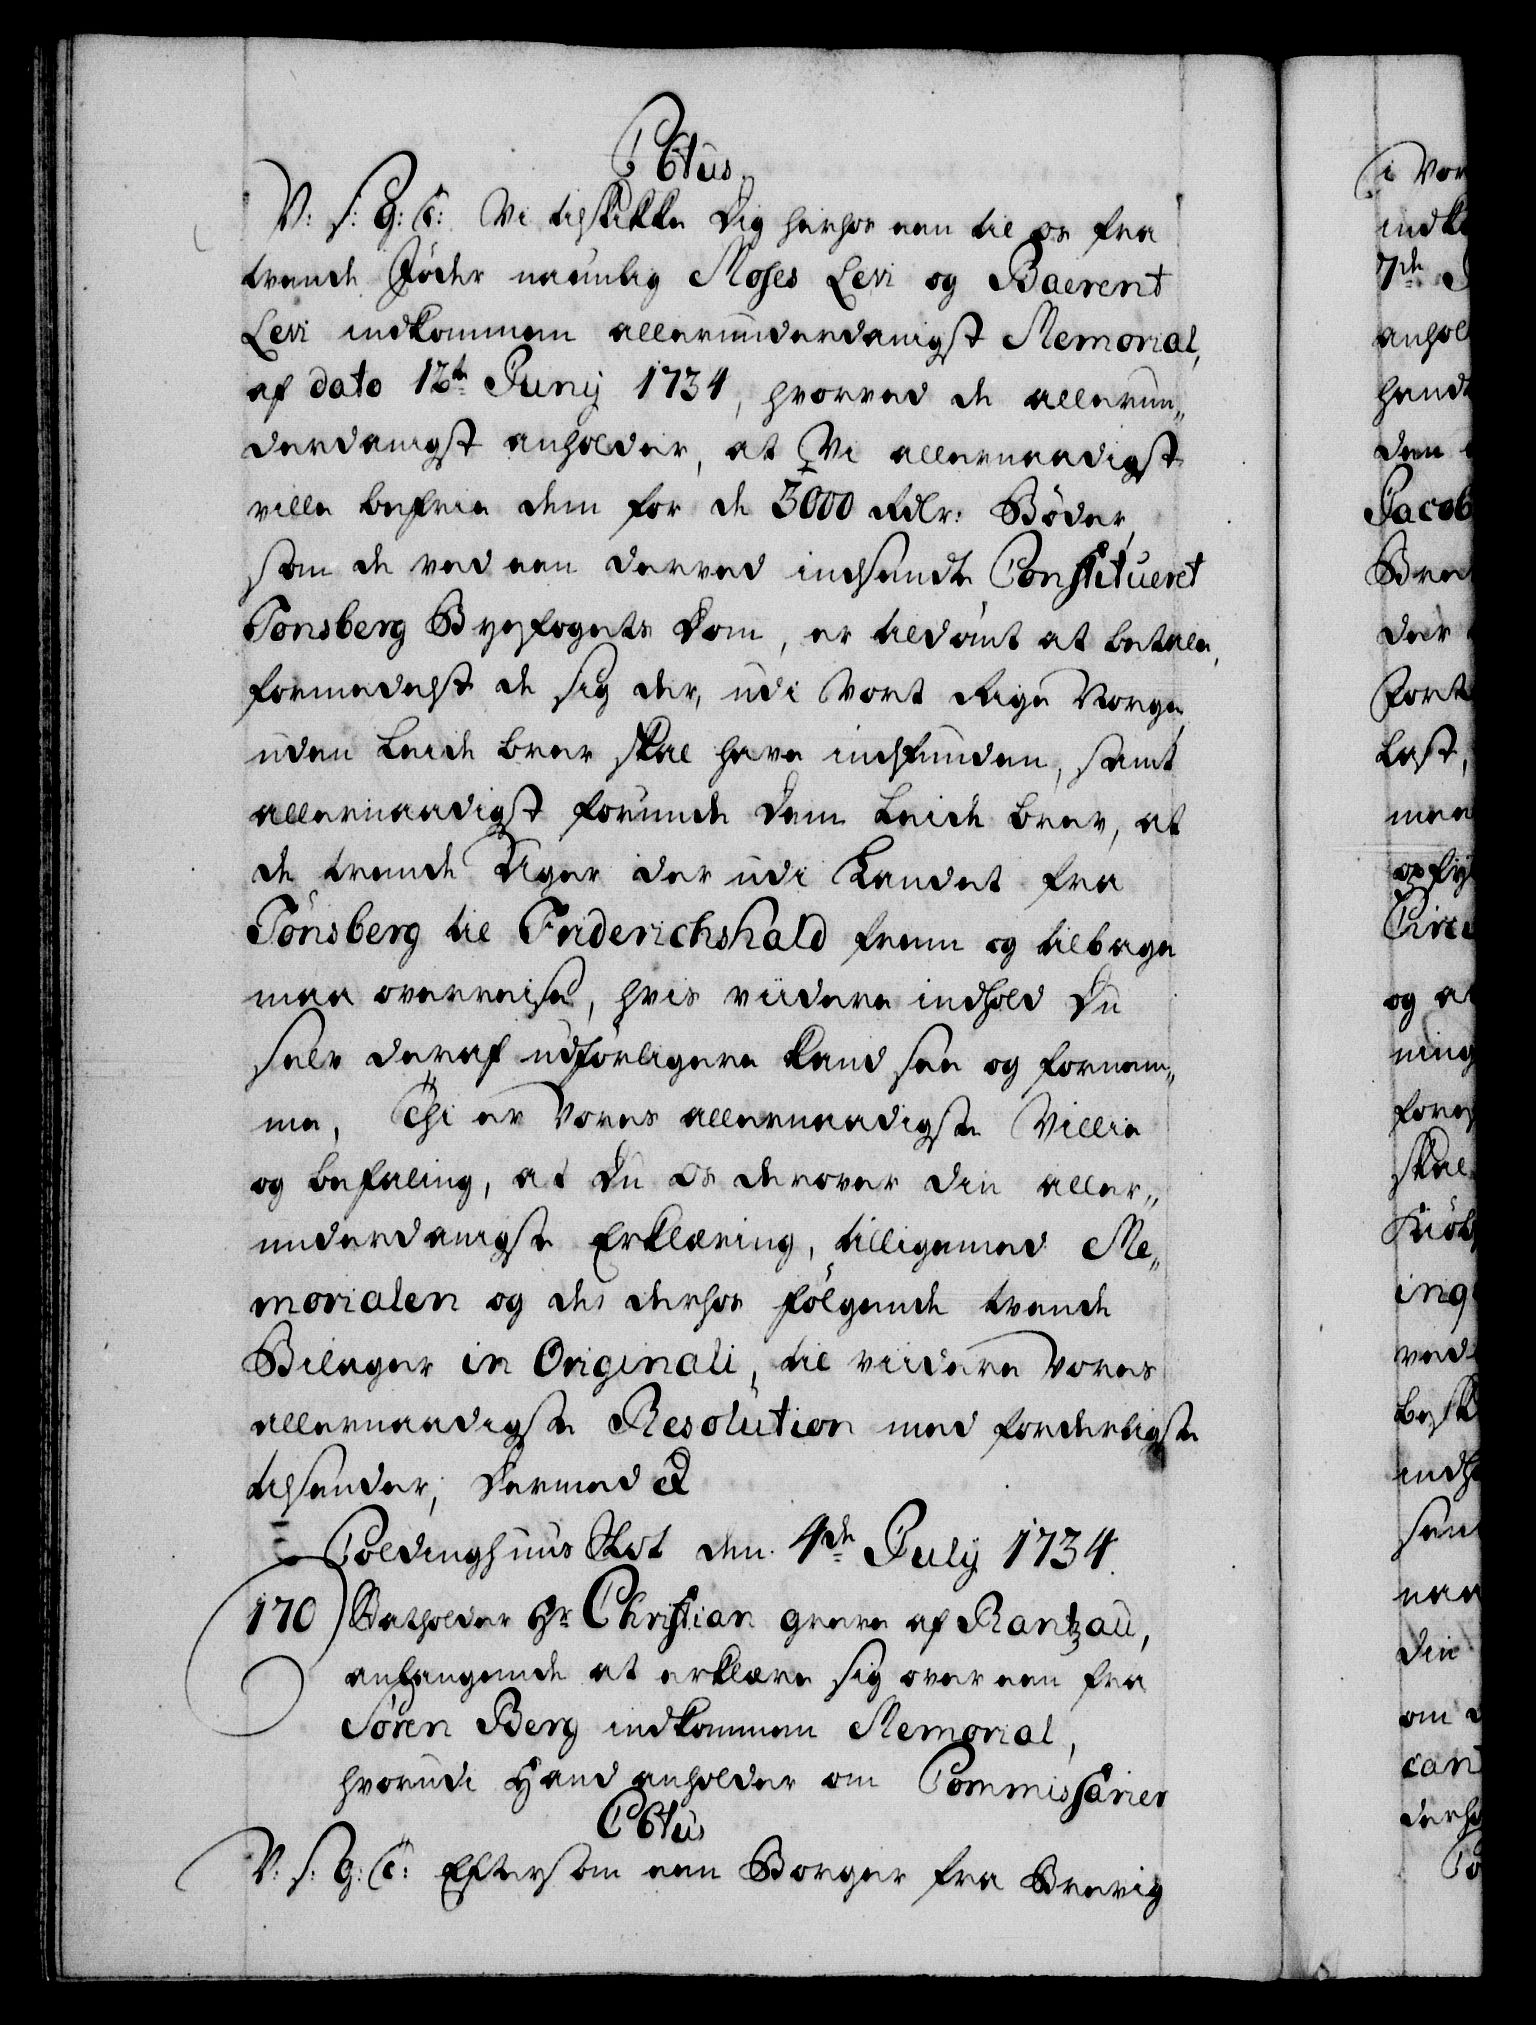 C6tus
V: S: G: C: Vi tilskikke Dig hierhos een til os fra
tvende Jøder naunlig Moses Levi og Baerent
Levi indkommen allerunderdanigst Memorial,
af dato 12te Junij 1734, hvorved de allerun„
derdanigst anholder, at Vi allernaadigst
ville befrie dem for de 3000 Rdlr: Bøder,
som de ved een derved indsendte Constitueret
Tonsberg Byefogets Dom, er tildömt at betale,
formedelst de sig der, udi Vort Rige Norge
uden Leide brev skal have indfunden, samt
allernaadigst forunde dem Leide brev, at
de tvende Uger der udi Landet fra
Tönsberg til Friderichshald frem og tilbage
maa overreise, hvis viidere indhold Du
selv deraf udförligere kand see og fornem„
me, Thi er Vores allernaadigste Villie
og befaling, at Du os derover din aller„
underdanigste Erklæring, tilligemed Me„
morialen og de derhos fölgende tvende
Bilager in Originali, til viidere Vores
allernaadigste Resolution med forderligste
tilsender, Dermed &
Coldinghuus Slot den 4de July 1734.
170) Statholder Hr Christian Greve af Rantzau,
anlangende at erklære sig over een fra
Søren Berg indkommen Memorial,
hvorudi Hand anholder om Commissarier
C6tus
V: S: G: C: Eftersom een Borger fra Brevig
i Vor
7de
anhol
hand
den
Jacob
Bre
der
fort
last,
mee
opfy
Circ
og a
ning
skal
ing
ved
indh
sen
naa
din
om
can
derh